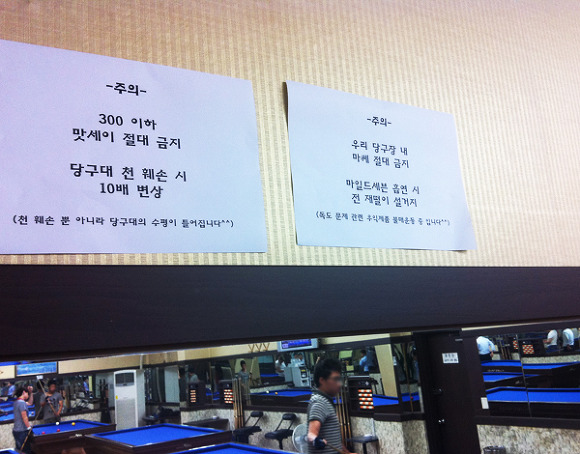 -주의-
300 이하
맛세이 절대 금지
당구대 천 훼손 시
10배 변상
(천 훼손 뿐 아니라 당구대의 수평이 틀어집니다^^)
-주의-
우리 당구장 내
마쎄 절대 금지
마일드세븐 흡연 시
전 재떨이 설거지
(독도 문제 관련 주식제품 불매운동 중 입니다^^)